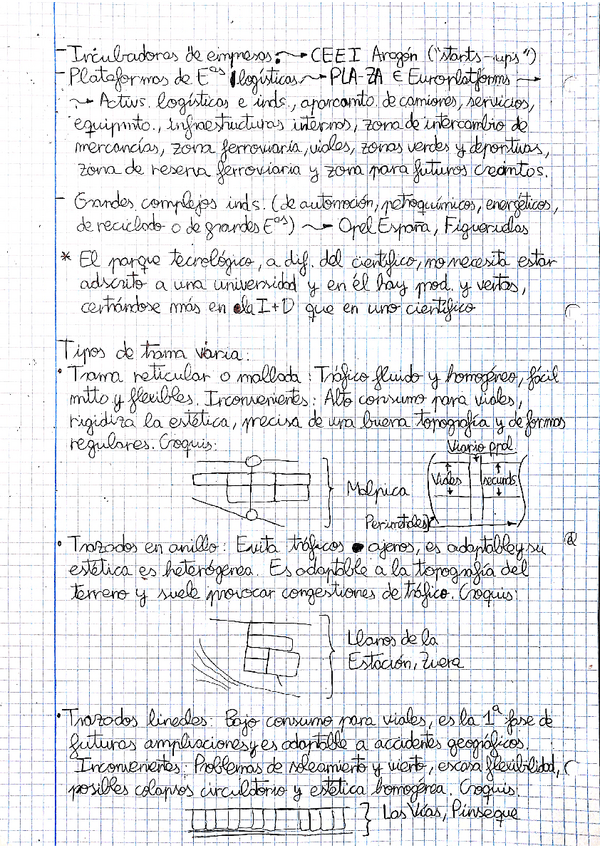 - Incubadoras de empresas: ~→ CEEI Aragón ("starts-ups")
- Plataformas de Eᵃˢ logísticas ~→ PLA-ZA ∈ Europlatforms ~→
~→ Activs. logísticas e inds., aparcamto. de camiones, servicios,
equipmto., infraestructuras internas, zona de intercambio de
mercancías, zona ferroviaria, viales, zonas verdes y deportivas,
zona de reserva ferroviaria y zona para futuros crecimtos.
- Grandes complejos inds. (de automoción, petroquímicos, energéticos,
de reciclado o de grandes Eᵃˢ) ~→ Opel España, Figueruelas
* El parque tecnológico, a dif. del científico, no necesita estar
adscrito a una universidad y en él hay prod. y ventas,
centrándose más en la I+D que en uno científico
Tipos de trama viaria:
• Trama reticular o mallada: Tráfico fluido y homogéneo, fácil
mtto y flexibles. Inconvenientes: Alto consumo para viales,
rigidiza la estética, precisa de una buena topografía y de formas
regulares. Croquis:
Viario ppal.
Viales secunds
Malpica
Perimetrales
• Trazados en anillo: Evita tráficos ajenos, es adaptable y su
estética es heterógenea. Es adaptable a la topografía del
terreno y suele provocar congestiones de tráfico. Croquis:
Llanos de la
Estación, Zuera
• Trazados lineales: Bajo consumo para viales, es la 1ª fase de
futuras ampliaciones y es adaptable a accidentes geográficos.
Inconvenientes: Problemas de soleamiento y viento, escasa flexibilidad,
posibles colapsos circulatorio y estética homogénea. Croquis:
Las Vías, Pinseque